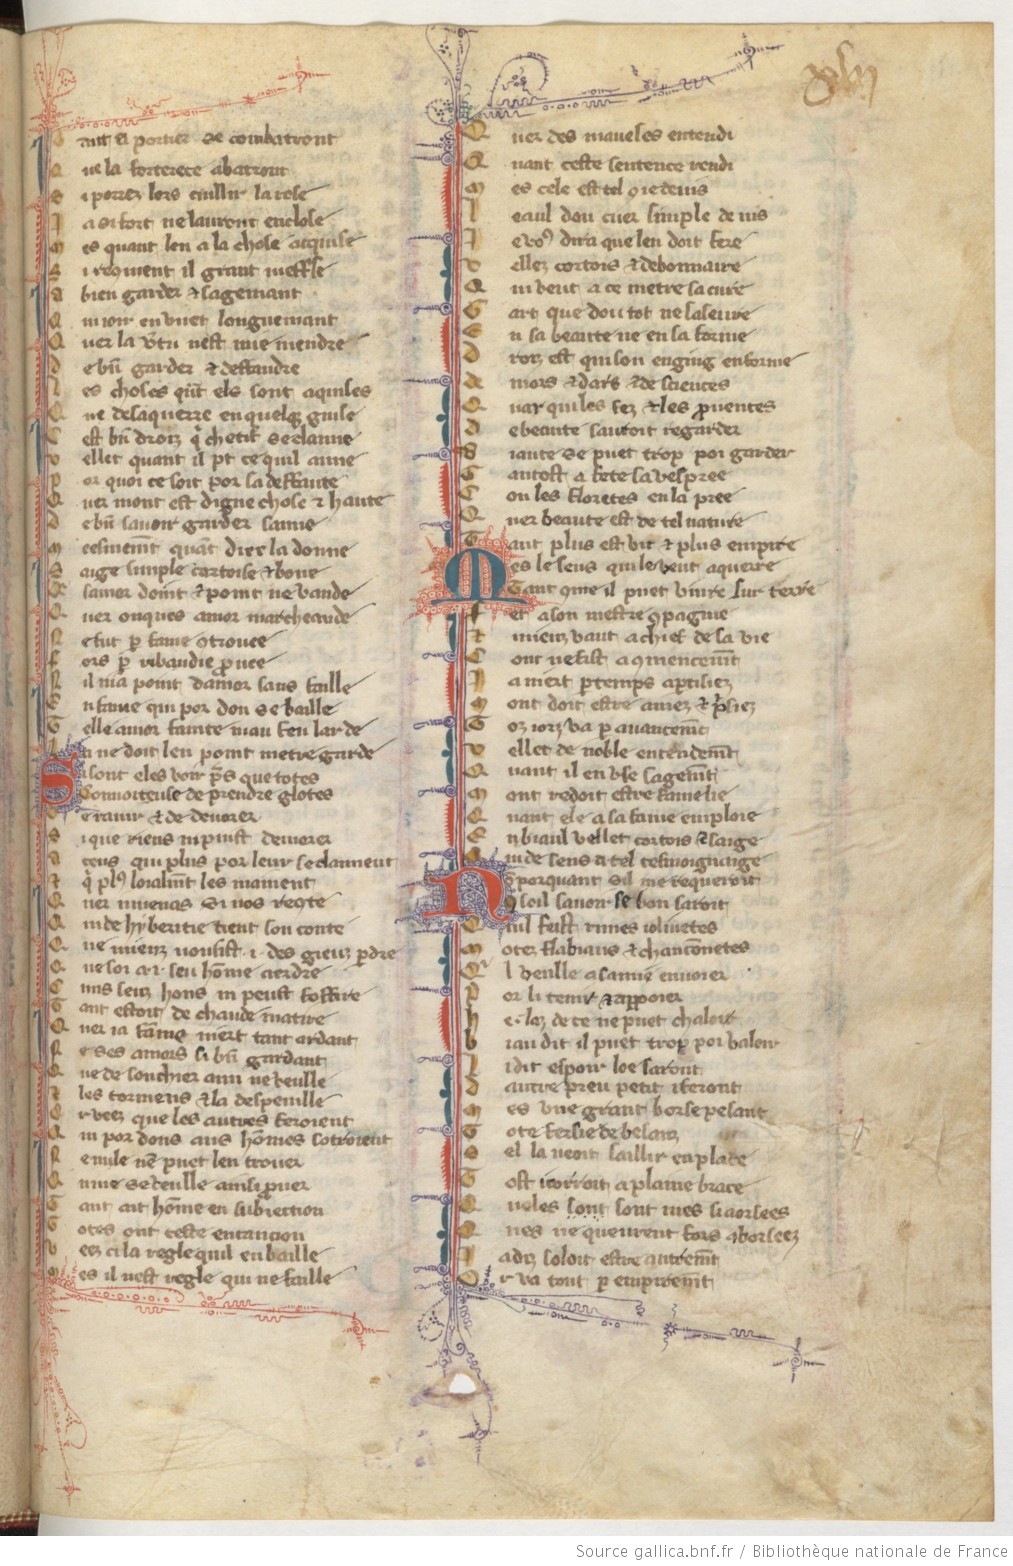 xlvii
Tant au portier se combatront
Que la forterece abatront
Si porrez lors cuillir la rose
Ja si fort ne lauront enclose
Mes quant len a la chose acquise
Si reqment il grant mestrise
A bien garder & sagemant
Qui joir en vuet longuemant
Quer la vtu nest mie mendre
De bn garder & deffandre
Les choses qnt els sont aquises
Que de laquerre en quelq guise
Cest bn droiz q chetif se clamme
Vellet quant il pt ce quil amme
Por quoi ce soit por sa deffaute
Quer mont est digne chose & haute
De bn savoir garder samie
quant diex la donne
Saige simple cortoise & bone
Qui samor doint & point ne vande
Quer onques amor marcheande
Ne fut p fame 9trouvee
Fors p ribaudie prouvee
Nil nia point damor sans faille
En fame qui por don se baille
Celle amor fainte mau feu larde
La ne doit len point metre garde
Si sont eles voir ps que totes
Convoiteuse de prendre glotes
De ravir & de devorer
Si que riens ni puist demorer
A ceus qui plus por leur se clamment
Et q pl9 loialmt les aimment
Quer juvenaus si nos racte
Qui de hyberine tient son conte
Que mieuz vousist .i. des gieuz pdre
Que soi a .i. seu home aerdre
Nuns seuz hons ni peust soffire
Tant estoit de chaude matire
Quer ja fame niert tant ardant
Ne ses amors si bn gardant
Que de son chier ami ne veulle
Et les tormens & la despeuille
Or veez que les autres feroient
Qui por dons aus homes sotroient
Ne nule nen puet len trover
Qui ne se veulle ainsi pver
Tant ait home en subjection
Totes ont ceste entancion
Veez ci la regle quil en baille
Mes il nest regle qui ne faille
Quer des mauveses entendi
Quant ceste sentence rendi
Mes cele est tel 9 je devis
Leaul dou cuer simple de vis
Je vo9 dirai que len doit fere
Vellez cortois & debonnaire
Qui veut a ce metre sa cure
Gart que dou tot ne sasseure
En sa beaute ne en sa forme
Droiz est qui son enging enforme
De mors & dars & de sciences
Quar qui les fins & les pventes
De beaute savroit regarder
Biaute se puet trop poi garder
Tantost a fete sa vespree
Con les floretes en la pree
Quer beaute est de tel nature
Tant plus est vit & plus empire
Mes le sens qui le veut aquerre
Tant que il puet vivre sur terre
Fet a son mestre 9pagnie
Et mieuz vaut a chief de la vie
Conc ne fist a 9mencemt
Ja niert p temps apetisiez
Mont doit estre amez & psiez
Toz jorz va p avancemt
Vellet de noble entendemt
Quant il en use sagemt
Mont redoit estre samie lie
Quant ele a sa fame emploie
En biaul vellet cortois & saige
Qui de sens a tel tesmoignaige
Neporquant sil me requeroit
Conseil savoir se bon seroit
Quil feist rimes jolivetes
Motez flabiaus & chanconetes
Quil veulle a samie envoier
Por li tenir & apoier
He las de ce ne puet chaloir
Biau dit il puet trop poi valoir
Li dit espoir loe seront
Dautre preu petit i feront
Mes une grant borse pesant
Tote fersie de besanz
Sel la veoit saillir en place
Tost i corroit a plaine brace
Queles sont sont mes si aorsees
Ques ne queurent fors a borseez
Jadiz soloit estre autremt
Or va tout p empiremt